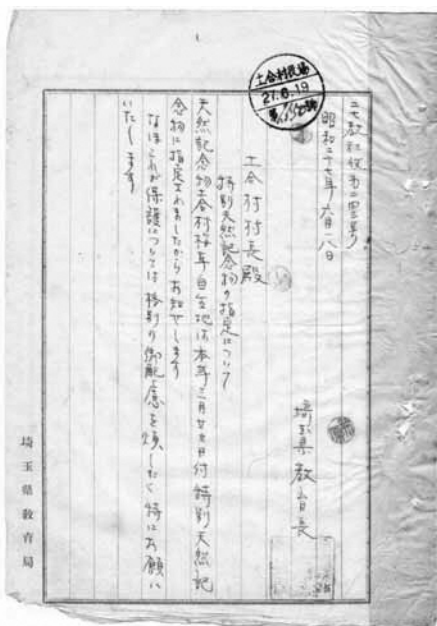 土合村役場
27.6.19
二七教社収第二四三号
昭和二十七年六月一八日
埼玉県教育長
土合村村長殿
特別天然記念物の指定について
天然記念物土合村桜草自生地は本年三月廿九日付特別天然記
念物に指定されましたからお知せします
なほこれが保護については格別の御配慮を煩したく特にお願い
いたします
埼玉県教育局